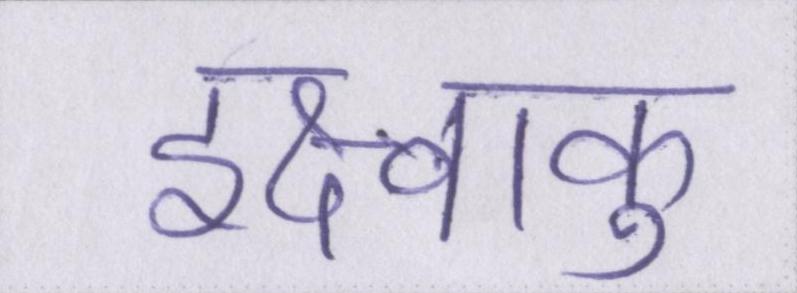 इक्ष्वाकु